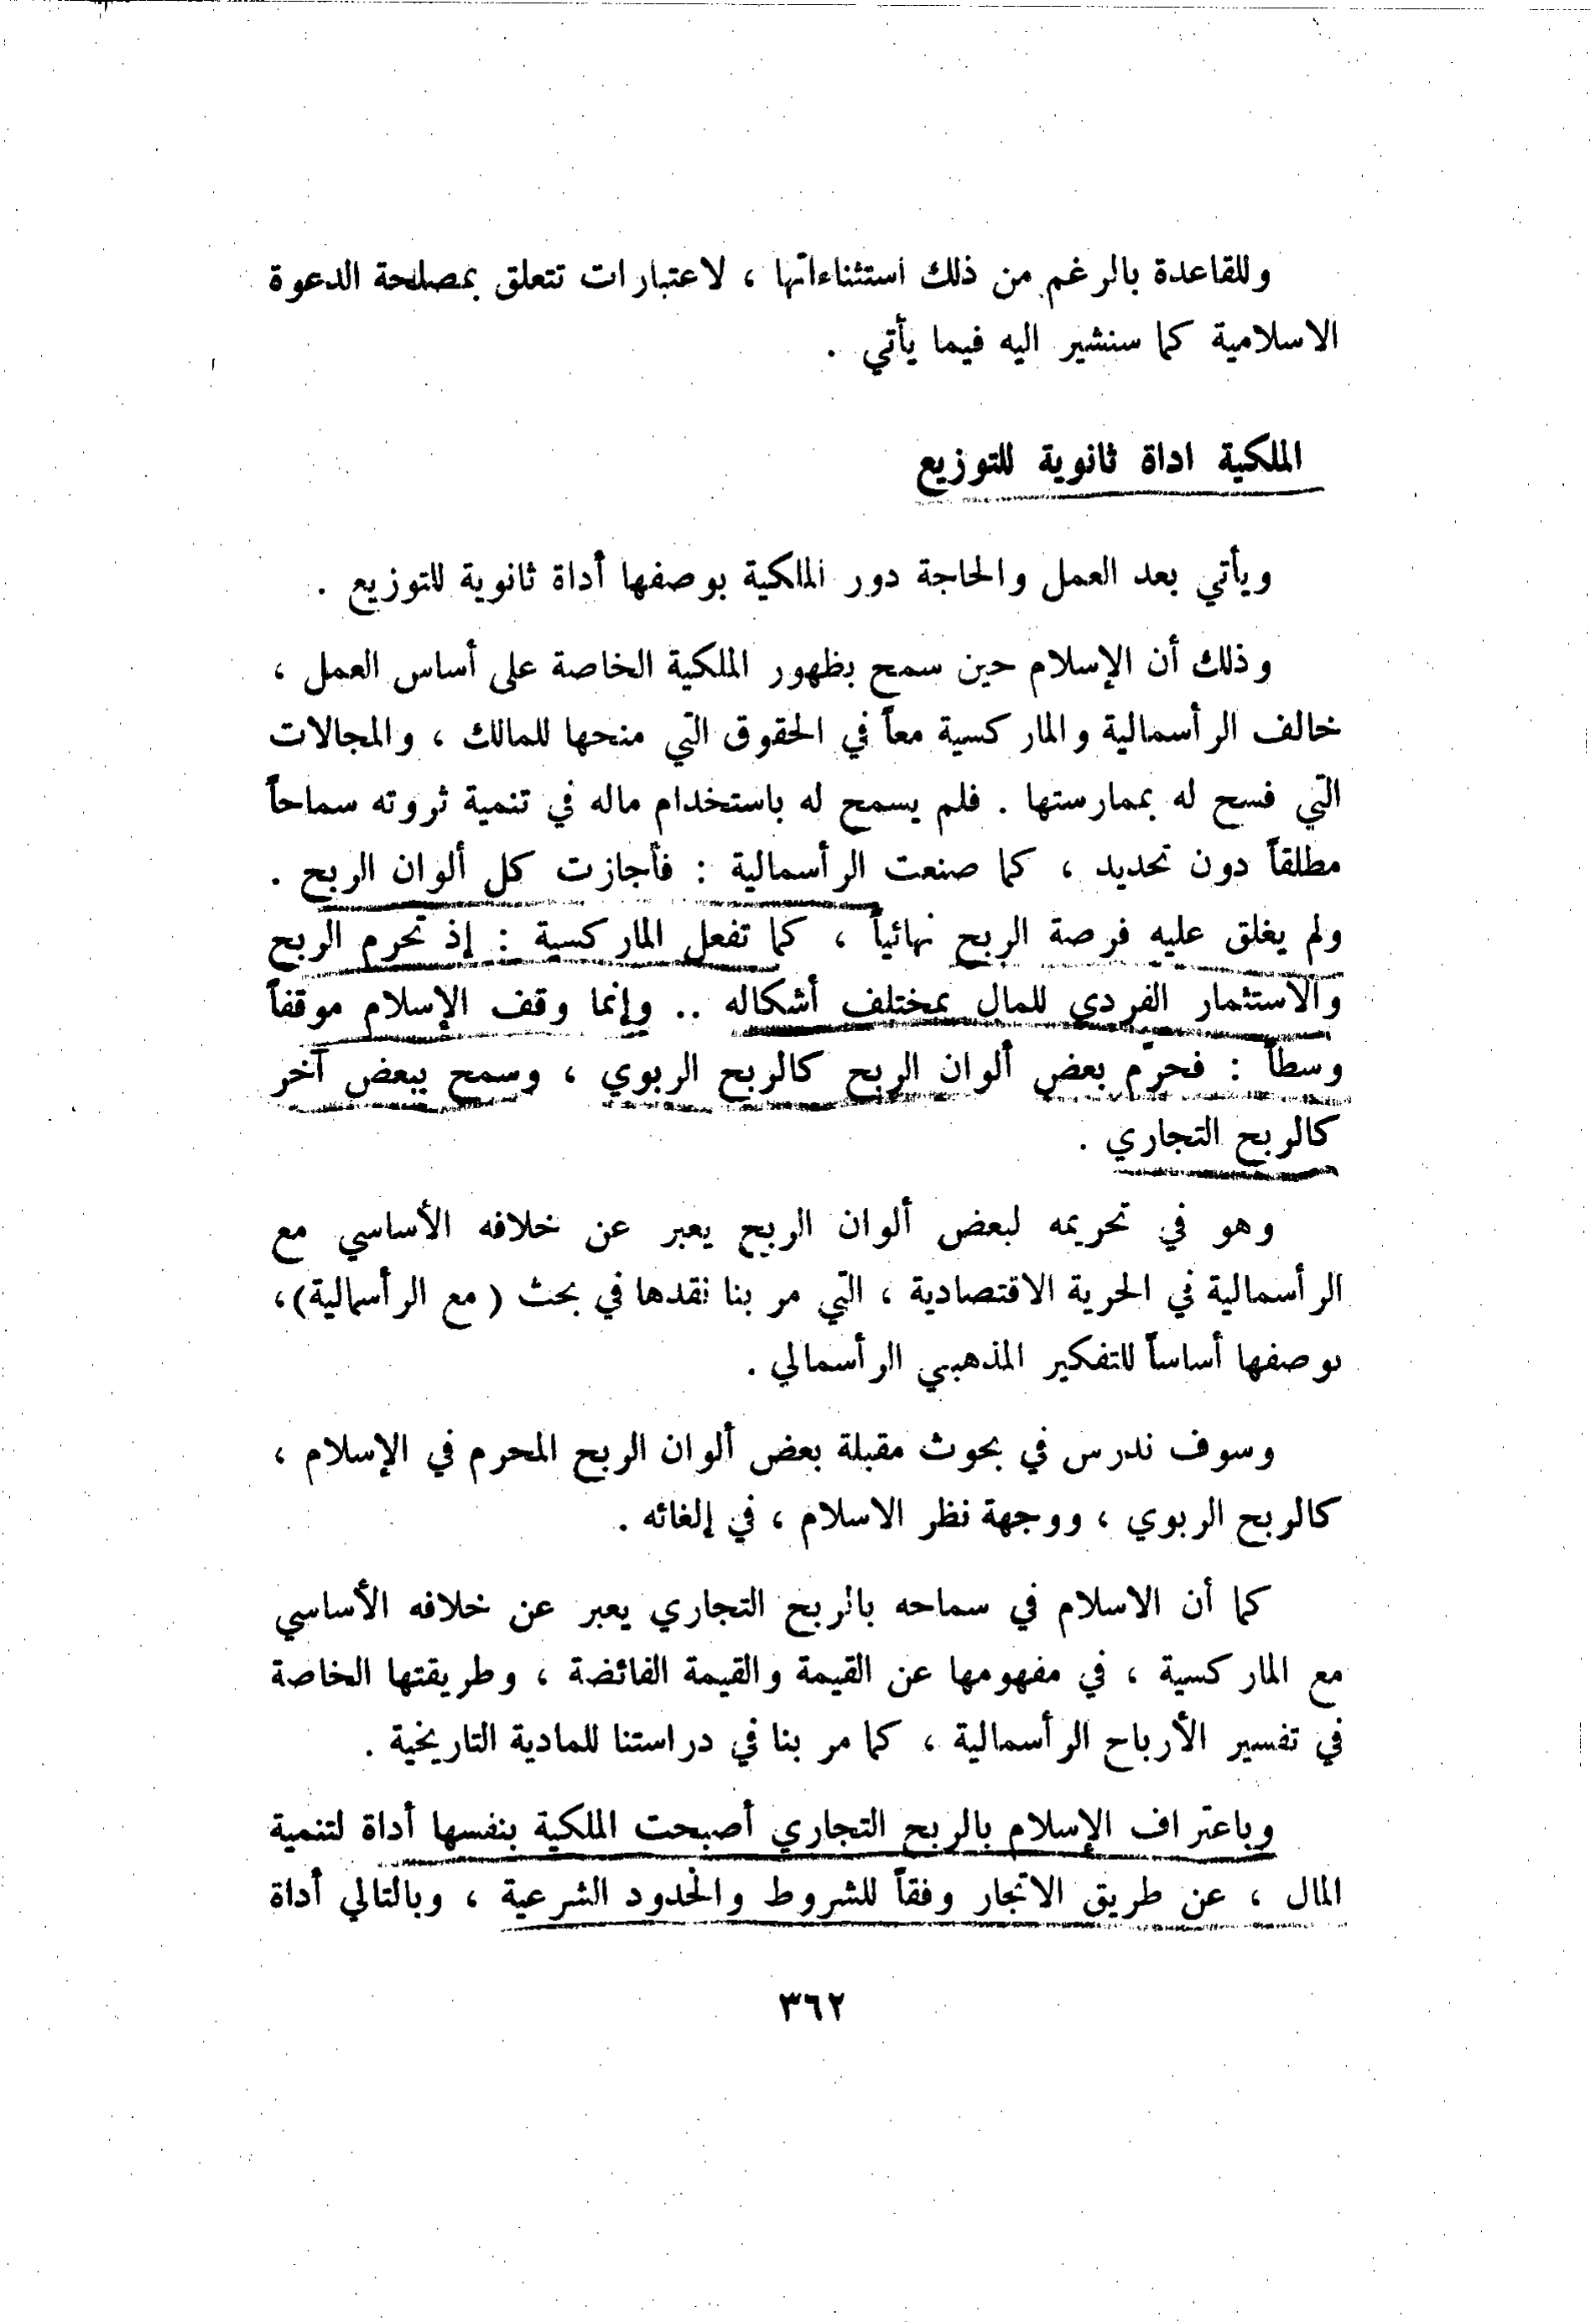 وللقاعدة بالرغم من ذلك استثناءاتها ، لاعتبارات تتعلق بمصلحة الدعوة
الاسلامية كما سنشير اليه فيما يأتي .
الملكية اداة ثانوية للتوزيع
ويأتي بعد العمل والحاجة دور الملكية بوصفها أداة ثانوية للتوزيع .
وذلك أن الإسلام حين سمح بظهور الملكية الخاصة على أساس العمل ،
خالف الرأسمالية والماركسية معاً في الحقوق التي منحها للمالك ، والمجالات
التي فسح له بممارستها . فلم يسمح له باستخدام ماله في تنمية ثروته سماحاً
مطلقاً دون تحديد ، كما صنعت الرأسمالية : فأجازت كل ألوان الربح .
ولم يغلق عليه فرصة الربح نهائياً ، كما تفعل الماركسية : إذ تحرم الربح
والاستثمار الفردي للمال بمختلف أشكاله .. وإنما وقف الإسلام موقفاً
وسطاً : فحرّم بعض ألوان الربح كالربح الربوي ، وسمح ببعض آخر
كالربح التجاري .
وهو في تحريمه لبعض ألوان الربح يعبر عن خلافه الأساسي مع
الرأسمالية في الحرية الاقتصادية ، التي مر بنا نقدها في بحث ( مع الرأسمالية)،
بوصفها أساساً للتفكير المذهبي الرأسمالي .
وسوف ندرس في بحوث مقبلة بعض ألوان الربح المحرم في الإسلام ،
كالربح الربوي ، ووجهة نظر الاسلام ، في إلغائه .
كما أن الاسلام في سماحه بالربح التجاري يعبر عن خلافه الأساسي
مع الماركسية ، في مفهومها عن القيمة والقيمة الفائضة ، وطريقتها الخاصة
في تفسير الأرباح الرأسمالية ، كما مر بنا في دراستنا للمادية التاريخية .
وباعتراف الإسلام بالربح التجاري أصبحت الملكية بنفسها أداة لتنمية
المال ، عن طريق الاتجار وفقاً للشروط والحدود الشرعية ، وبالتالي أداة
٣٦٢